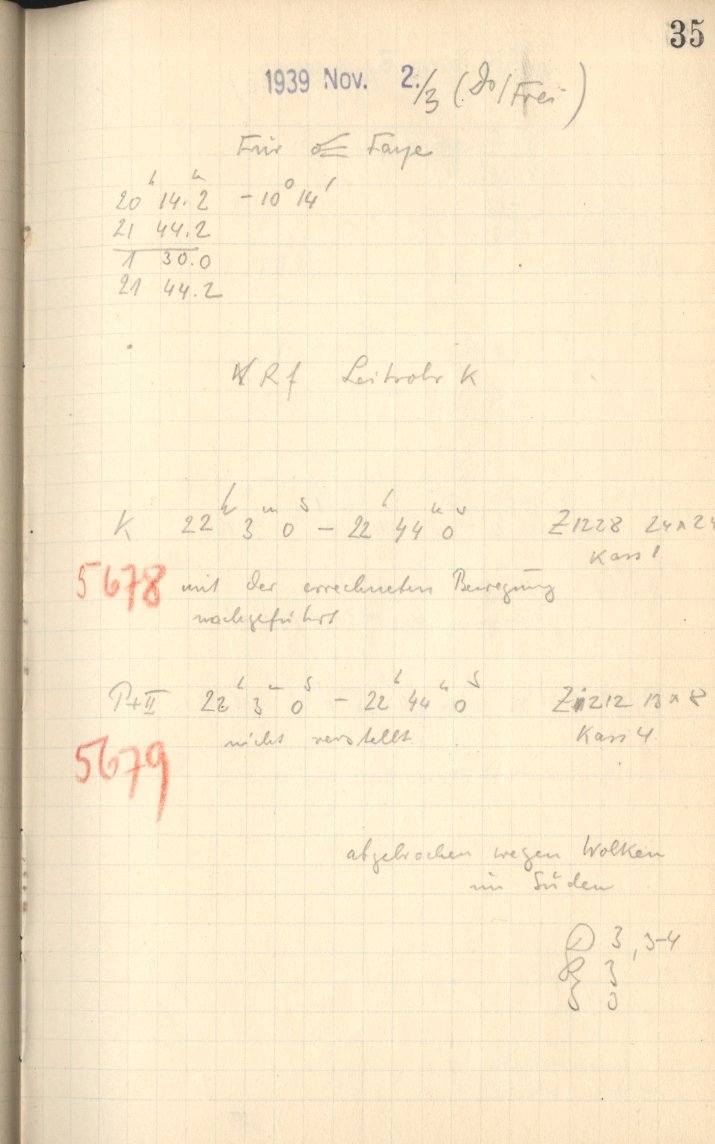 35
1939 Nov. 2./3 (Do/Frei)
Für ☄ Faye
20ʰ 14.ᵐ2 -10° 14'
21 44.2
1 30.0
21 44.2
Rf Leitrohr K
K 22ʰ 3ᵐ 0ˢ – 22ʰ 44ᵐ 0ˢ Z1228 24×24
Kass 1
5678 mit der errechneten Bewegung
nachgeführt
P+II 22ʰ 3ᵐ 0ˢ – 22ʰ 44ᵐ 0ˢ Z1212 13×8
nicht verstellt Kass 4
5679
abgebrochen wegen Wolken
im Süden
3, 3-4
3
0